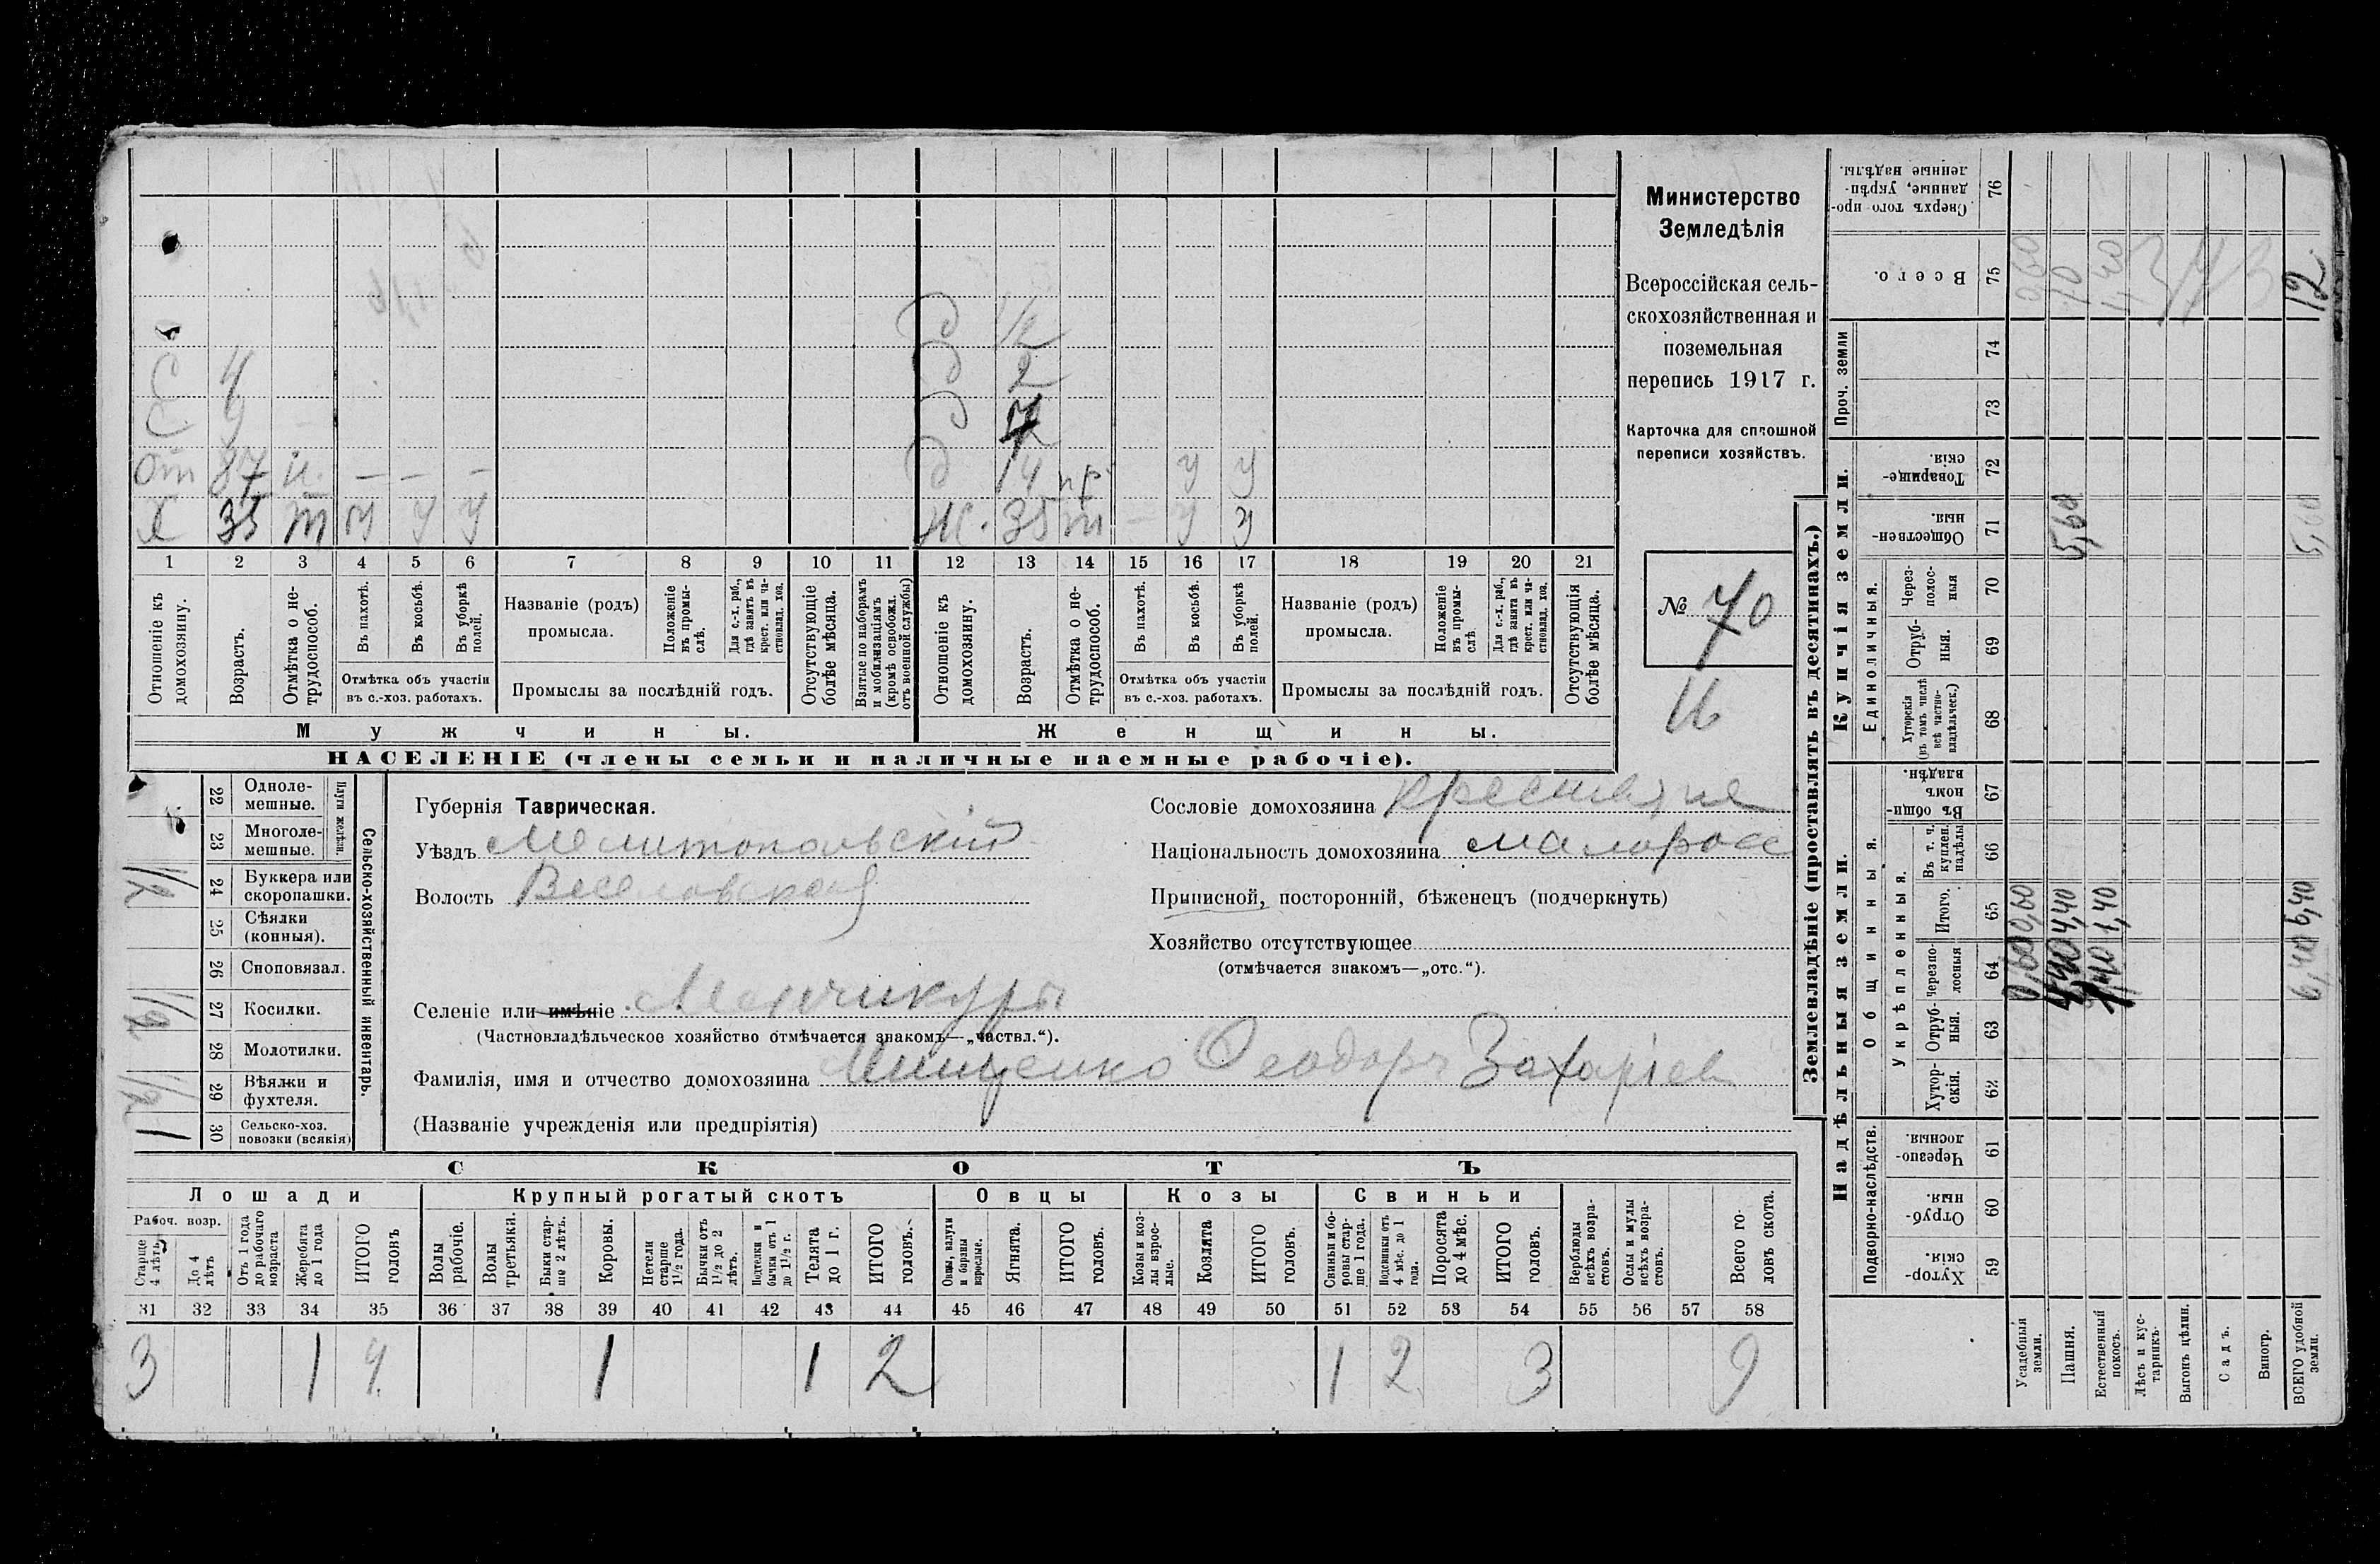 Министерство
Земледѣлія
Всероссійская сель-
скохозяйственная и
поземельная
перепись 1917 г.
Карточка для сплошной
переписи хозяйствъ.
№ 70
д 1/2
С 4 д 2
С. 9 д
От 87 н. — — — д 14 пр у у
Х 35 т у у у Ж. 35 т — у у
1 2 3 4 5 6 7 8 9 10 11 12 13 14 15 16 17 18 19 20 21
Отношеніе къ домохозяину.
Возрастъ.
Отмѣтка о не-трудоспособ.
Въ пахотѣ.
Въ косьбѣ.
Въ уборкѣ полей.
Отмѣтка объ участіи
въ с.-хоз. работахъ.
Названіе (родъ)
промысла.
Положеніе въ промы-слѣ.
Для с.-х. раб., гдѣ занятъ въ крест. или ча-стновлад. хоз.
Промыслы за послѣдній годъ.
Отсутствующіе болѣе мѣсяца.
Взятые по наборамъ и мобилизаціямъ (кромѣ освобожд. отъ военной службы)
Отношеніе къ домохозяину.
Возрастъ.
Отмѣтка о не-трудоспособ.
Въ пахотѣ.
Въ косьбѣ.
Въ уборкѣ полей.
Отмѣтка объ участіи
въ с.-хоз. работахъ.
Названіе (родъ)
промысла.
Положеніе въ промы-слѣ.
Для с.-х. раб., гдѣ занята въ крест. или ча-стновлад. хоз.
Промыслы за послѣдній годъ.
Отсутствующія болѣе мѣсяца.
Мужчины. Женщины.
НАСЕЛЕНІЕ (члены семьи и наличные наемные рабочіе).
Сельско-хозяйственный инвентарь.
Плуги желѣзн.
22 Одноле-мешные.
23 Многоле-мешные.
24 Буккера или скоропашки. 1/2
25 Сѣялки (конныя).
26 Сноповязал.
27 Косилки. 1/2
28 Молотилки.
29 Вѣялки и фухтеля. 1/2
30 Сельско-хоз. повозки (всякія) 1
Губернія Таврическая.
Уѣздъ Мелитопольскій
Волость Веселовская
Селеніе или имѣніе Менчикуры
(Частновладѣльческое хозяйство отмѣчается знакомъ—„частвл.“).
Фамилія, имя и отчество домохозяина Мищенко Ѳеодоръ Захаріев
(Названіе учрежденія или предпріятія)
Сословіе домохозяина крестьяне
Національность домохозяина малоросс
Приписной, посторонній, бѣженецъ (подчеркнуть)
Хозяйство отсутствующее
(отмѣчается знакомъ—„отс.“).
СКОТЪ
Лошади Крупный рогатый скотъ Овцы Козы Свиньи
Рабоч. возр.
Старше 4 лѣтъ.
До 4 лѣтъ
Отъ 1 года до рабочаго возраста
Жеребята до 1 года
ИТОГО головъ
Волы рабочіе.
Волы третьяки.
Быки стар-ше 2 лѣтъ.
Коровы.
Нетели старше 1 1/2 года.
Бычки отъ 1 1/2 до 2 лѣтъ.
Подтелки и бычки отъ 1 до 1 1/2 г.
Телята до 1 г.
ИТОГО головъ.
Овцы, валухи и бараны взрослые.
Ягнята.
ИТОГО головъ.
Козы и коз-лы взрос-лые.
Козлята
ИТОГО головъ.
Свиньи и бо-ровы стар-ше 1 года.
Подсвинки отъ 4 мѣс. до 1 года.
Поросята до 4 мѣс.
ИТОГО головъ.
Верблюды всѣхъ возра-стовъ.
Ослы и мулы всѣхъ возра-стовъ.
Всего го-ловъ скота.
31 32 33 34 35 36 37 38 39 40 41 42 43 44 45 46 47 48 49 50 51 52 53 54 55 56 57 58
3 1 4 1 1 2 1 2 3 9
Землевладѣніе (проставлять въ десятинахъ.)
Надѣльныя земли. Купчія земли. Проч. земли
Подворно-наслѣдств.
Общинныя.
Укрѣпленныя.
Единоличныя.
Сверхъ того про-данные, укрѣп-ленные надѣлы. 76
Всего. 75
74
73
Товарище-скія. 72
Обществен-ныя. 71
Через-полос-ныя 70
Отруб-ныя. 69
Хуторскія (въ томъ числѣ всѣ частно-владѣльческ.) 68
Въ общин-номъ владѣн. 67
Въ т. ч. куплен. надѣлы 66
Итого. 65
Черезпо-лосныя 64
Отруб-ныя. 63
Хутор-скія. 62
Черезпо-лосныя. 61
Отруб-ныя. 60
Хутор-скія. 59
Усадебныя земли. 0,60 0,60
Пашня. 4,40 4,40 5,60 10
Естественный покосъ. 1,40 1,40 1,40
Лѣсъ и кус-тарникъ.
Выгонъ цѣлин.
Садъ.
Виногр.
ВСЕГО удобной земли. 6,40 6,40 5,60 12